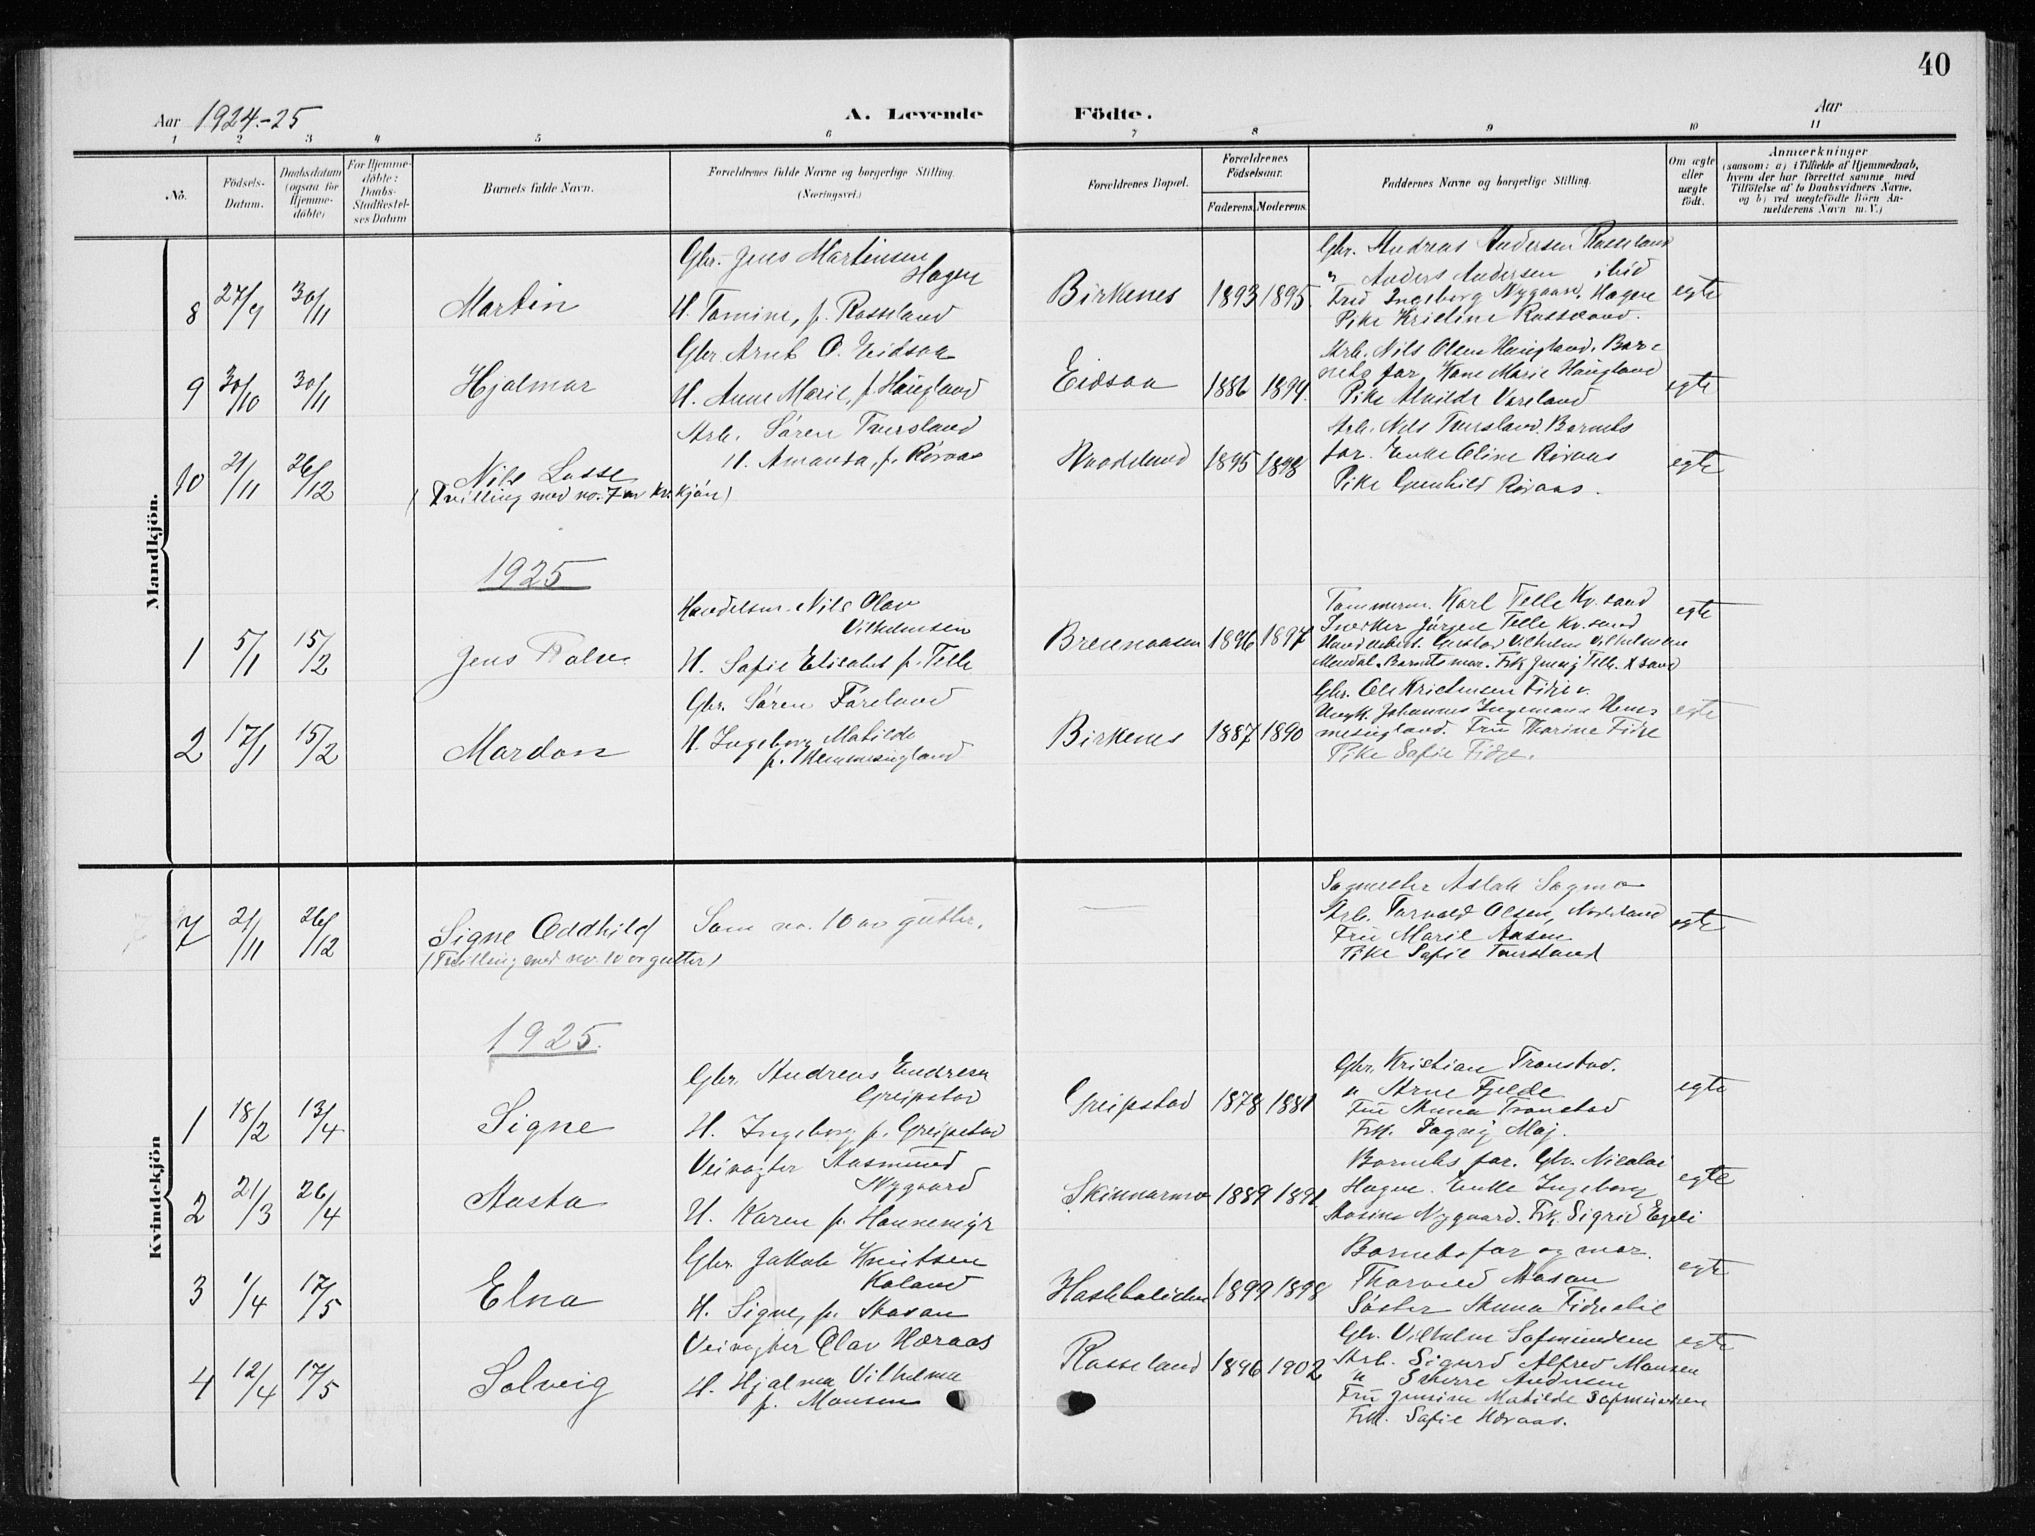 40
Aar 1924.-25
A. Levende Födte.
Aar
1 2 3 4 5 6 7 8 9 10 11
No.
Födsels-Datum.
Daabsdatum (ogsaa for Hjemme-döbte)
For Hjemme-döbte: Daabs-Stadfæstel-ses Datum
Barnets fulde Navn.
Forældrenes fulde Navne og borgerlige Stilling.
(Næringsvei.)
Forældrenes Bopæl.
Forældrenes Födselsaar.
Faderens. Moderens.
Faddernes Navne og borgerlige Stilling.
Om ægte eller uægte födt.
Anmærkninger
(saasom: a) i Tilfælde af Hjemmedaab, hvem der har forrettet samme, med Tilföielse af to Daabsvidners Navne, og b) ved uægtefödte Börn An-melderens Navn m. V.)
Mandkjön.
8 27/9 30/11 Martin
Gbr. Jens Martinsen
Hagen
H. Tomine, f. Rosseland
Birkenes 1893 1895.
Gbr. Andreas Andersen Rosseland
" Anders Andersen ibid
Frü Ingeborg Nygaard, Hagen
Pike Kristine Rosseland.
egte
9 30/10 30/11 Hjalmar
Gbr Arnt O. Eidsaa
H. Anne Marie, f. Haugland
Eidsaa 1886 1894.
Arb. Nils Olsen Haugland. Bar-
nets far, Kone Marie Haugland
Pike Alvilde
egte
10 21/11 26/12 Nils Lasse
(Tvilling med no. 7 av kv. kjön)
Arb. Sören Tversland
H. Amanda, f. Röraas
1895 1898
Arb. Nils Tversland. Barnets
far. Enke Oline Röraas
Pike Gunhild Röraas.
egte
1925
1 5/1 15/2 Jens
Handelsm. Nils Olav
Vilhelmsen
H. Sofie Elisabet f. Telle
1896 1897
Tømmerm. Karl Telle Kr.sand
Jørgen Telle Kr.sand
Gustav Vilhelm Vilhelmsen
Mandal. Barnets mor. Frk Telle. Kr.sand
egte
2 17/1 15/2 Mordon
Gbr. Sören Föreland
H. Ingeborg Matilde
f. Hemmingland
Birkenes 1887 1890
Gbr. Ole Kristensen Fidje
Ungk. Johannes Ingemann Hem-
mingland. Frü Thorine Fidje
Pike Sofie Fidje.
egte
Kvindekjön
7 21/11 26/12 Signe Oddhild
(Tvilling med no. 10 av gutter)
Som no. 10 av gutter.
Sogmester Aslak Sagmo
Arb. Torvald Olsen,
Frü Marie Aasen
Pike Sofie Tversland
egte
1925.
1 18/2 13/4 Signe
Gbr. Andreas Endresen
Greipstad
H. Ingeborg f. Greipstad
Greipstad 1878 1881
Gbr. Kristian Tronstad.
" Arne Fjelde
Frü Anna Tronstad
Frk. Dagny Moj.
egte
2 21/3 26/4 Aasta
Veivogter Aasmund
Nygaard
H. Karen f. Hannemyr
Skinnarmo 1889 1891
Barnets far. Gbr. Nicolai
Hagen. Enke Ingeborg
Aasine Nygaard. Frk. Sigrid Egeli
egte
3 1/4 17/5 Elna
Gbr. Jakob Knutsen
Koland
H. Signe, f. Aasan
1899 1898
Barnets far og mor.
Thorvald Aasan
Söster Anna
egte
4 12/4 17/5 Solveig
Veivogter Olav Heraas
H. Hjalma Vilhelma
f. Monsen
Rosseland 1896 1902
Gbr. Vilhelm Sofmundsen
Arb. Sigurd Alfred Monsen
" Sverre Andersen
Frü Matilde Sofmundsen
Frk. Sofie Heraas.
egte